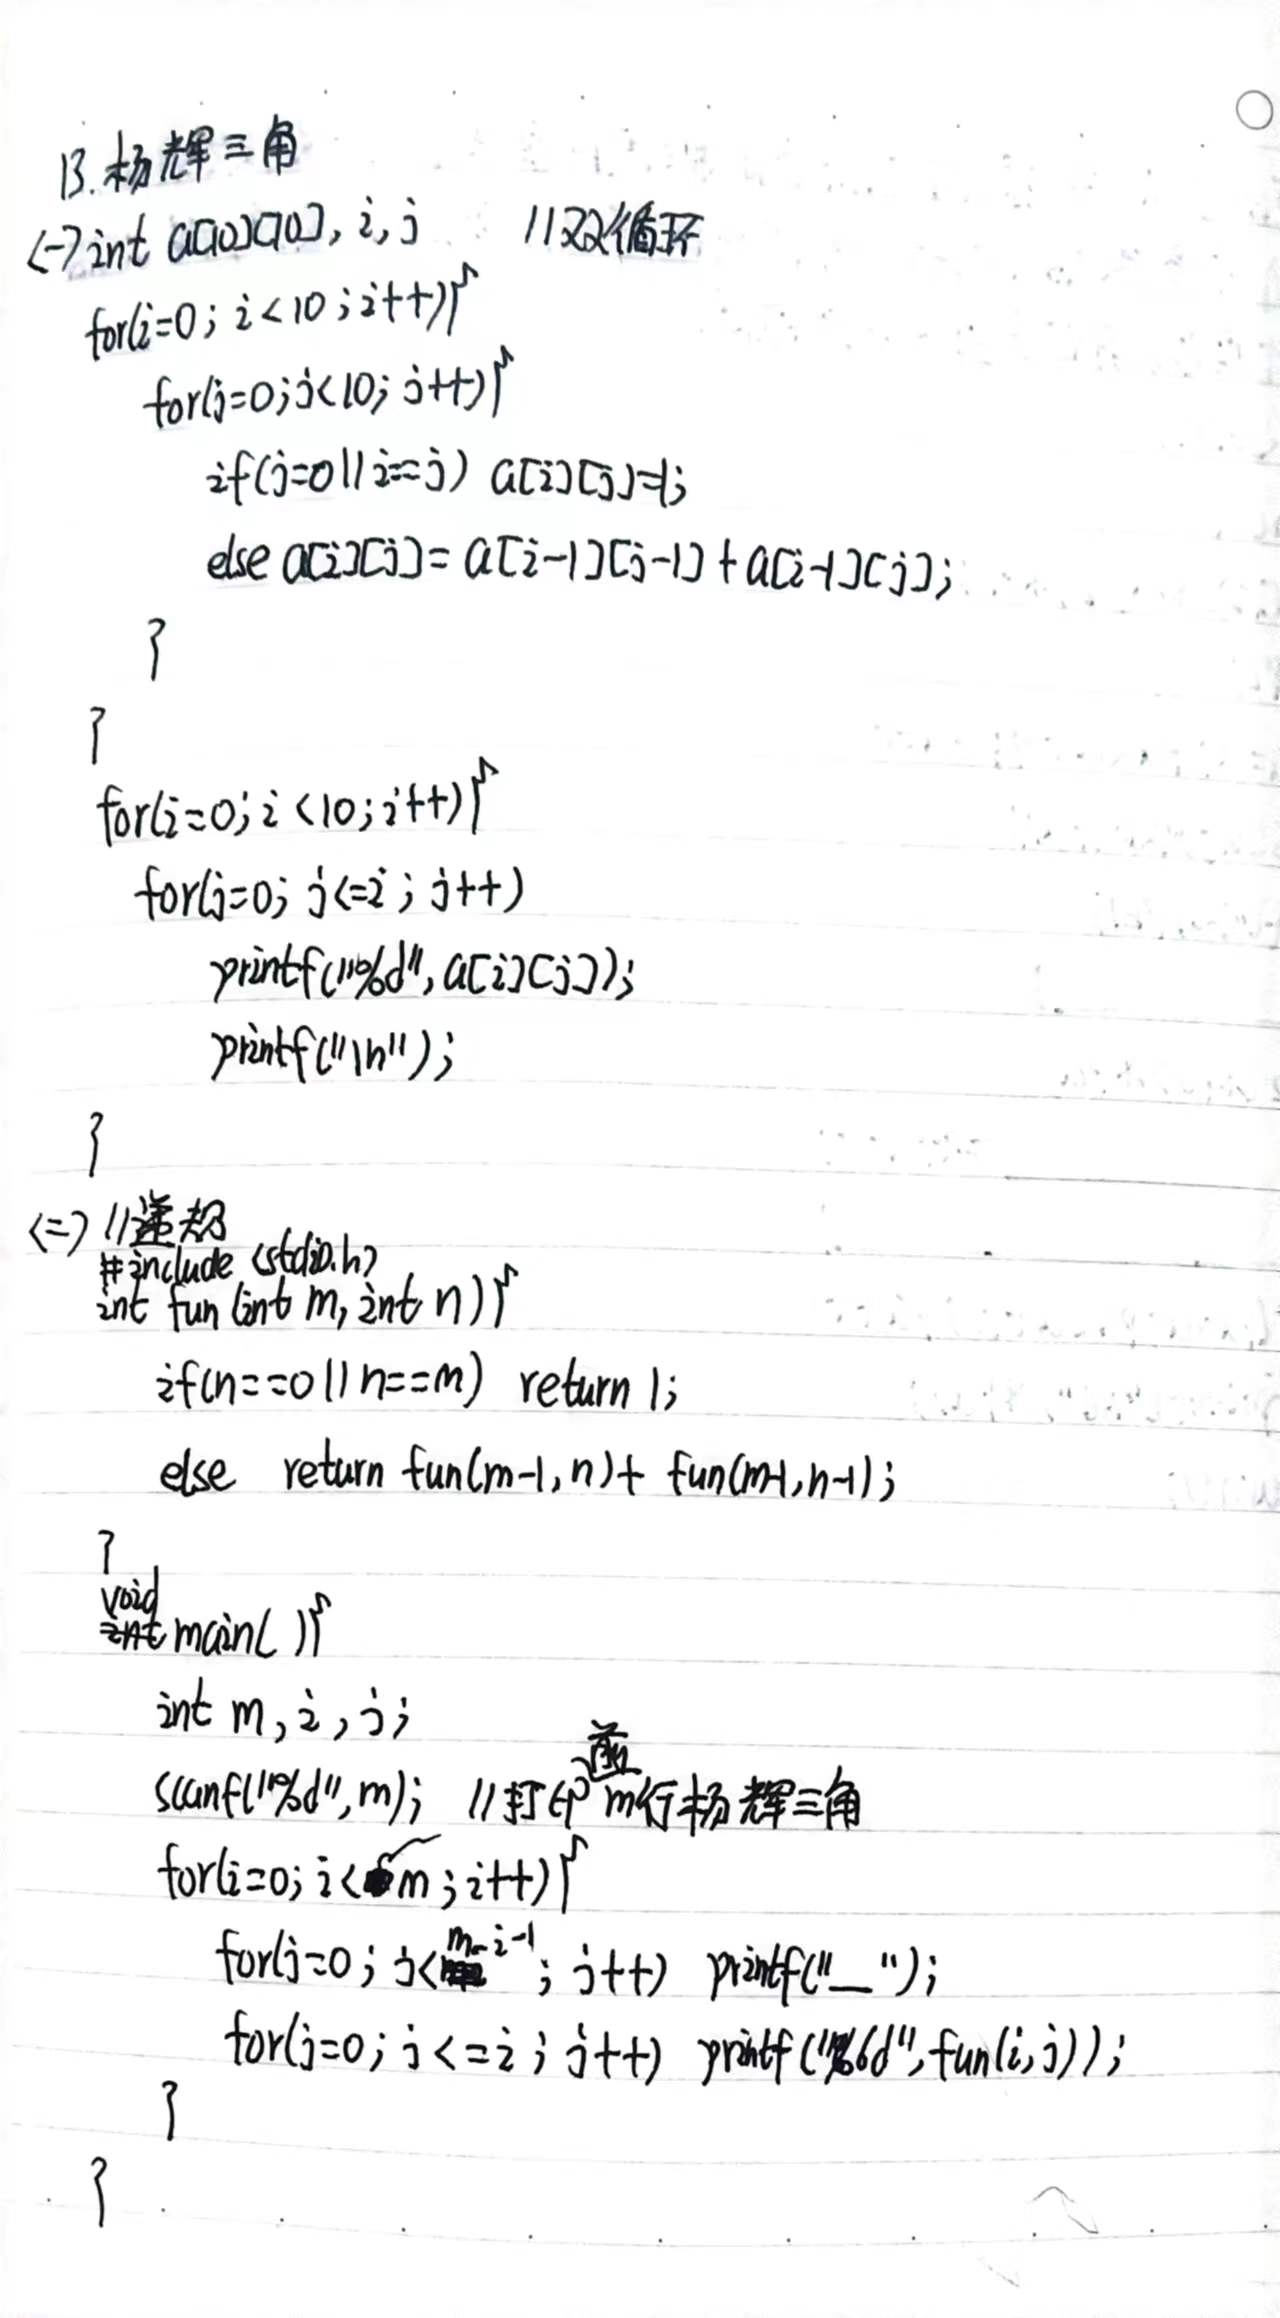 13.杨辉三角
<一>int a[10][10], i, j //双循环
for(i=0; i<10; i++){
for(j=0; j<10; j++){
if(j=0||i==j) a[i][j]=1;
else a[i][j]=a[i-1][j-1]+a[i-1][j];
}
}
for(i=0; i<10; i++){
for(j=0; j<=i; j++)
printf("%d",a[i][j]);
printf("\n");
}
<二> //递规
#include <stdio.h>
int fun(int m, int n){
if(n==0||n==m) return 1;
else return fun(m-1,n)+ fun(m-1,n-1);
}
void
int main( ){
int m, i, j;
scanf("%d",m); //打印前m行杨辉三角
for(i=0; i<m; i++){
for(j=0; j<m-i-1; j++) printf("__");
for(j=0; j<=i; j++) printf("%6d",fun(i,j));
}
}